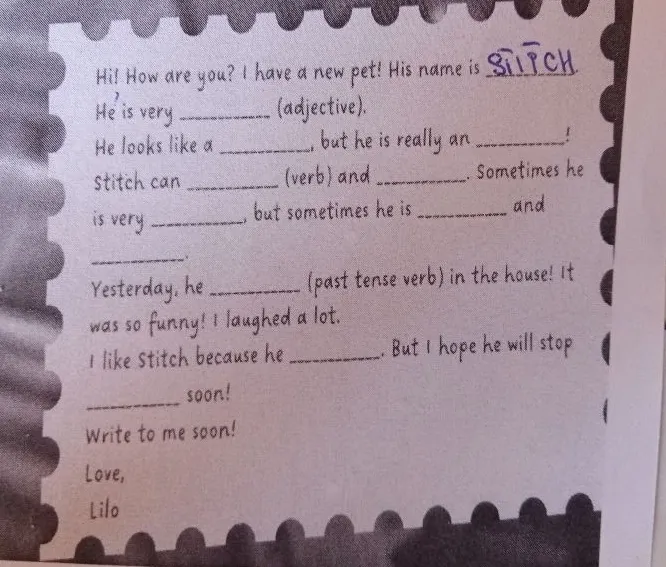 Hi! How are you? I have a new pet! His name is STITCH.
He is very __________ (adjective).
He looks like a __________, but he is really an __________!
Stitch can __________ (verb) and __________. Sometimes he
is very __________, but sometimes he is __________ and
__________.
Yesterday, he __________ (past tense verb) in the house! It
was so funny! I laughed a lot.
I like Stitch because he __________. But I hope he will stop
__________ soon!
Write to me soon!
Love,
Lilo